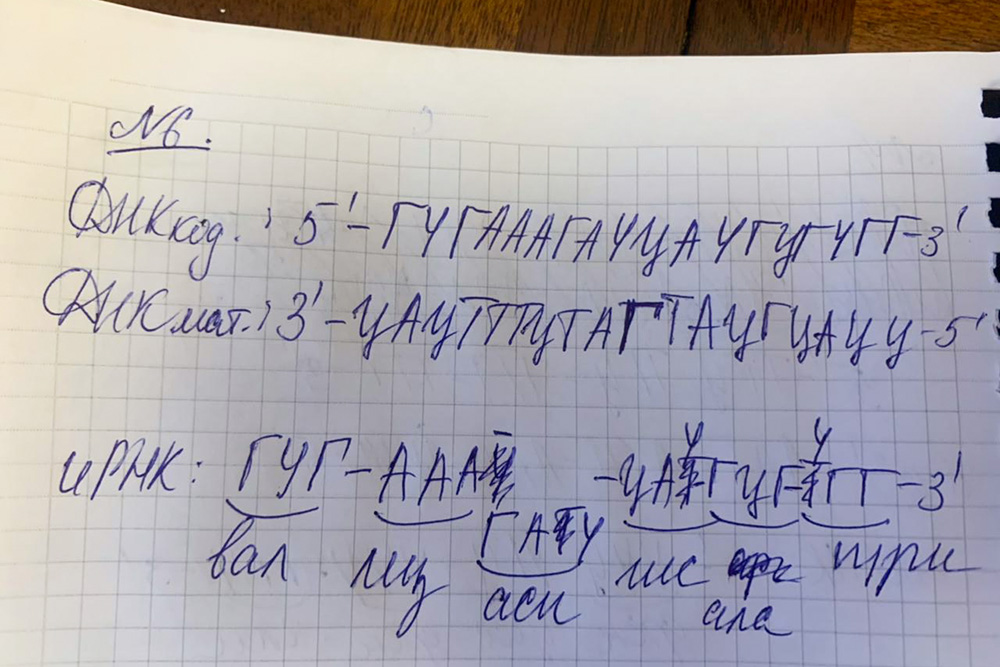 №6.
ДНК код.: 5'-ГУГАААГАУЦАУГЦГУГГ-3'
ДНК мат.: 3'-ЦАЦТТТЦТАГТАЦГЦАЦЦ-5'
иРНК: ГУГ-ААА -ЦАУГЦГ-УГГ-3'
ГАУ
вал лиз асп гис ала три